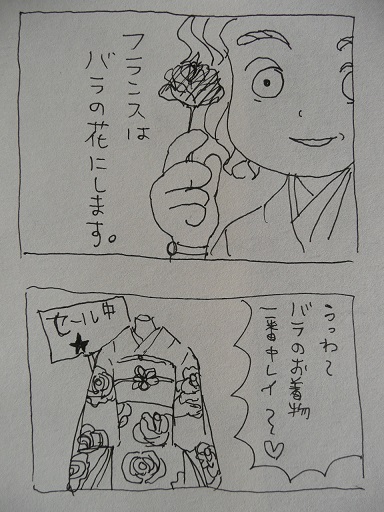 フランスは
バラの花にします。
うっわ~
バラのお着物
一番キレイ~~♡
セール中
★